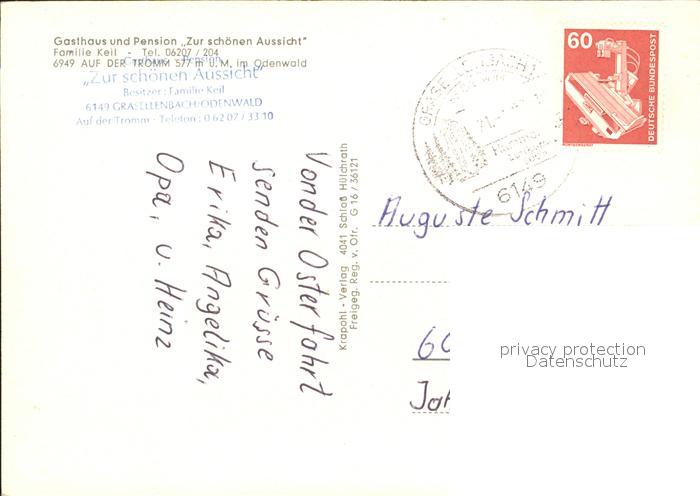 Gasthaus und Pension „Zur schönen Aussicht"
Familie Keil - Tel. 06207 / 204
6949 AUF DER TROMM 577 m ü. M. im Odenwald
„Zur schönen Aussicht"
Besitzer: Familie Keil
6149 GRASELLENBACH/ODENWALD
Auf der Tromm - Telefon: 0 62 07 / 33 10
Von der Osterfahrt
senden Grüsse
Erika, Angelika,
Opa, u. Heinz
Krapohl - Verlag 4041 Schloß Hülchrath
Freigeg. Reg. v. Ofr. G 16 / 36121
6149
60
DEUTSCHE BUNDESPOST
Auguste Schmitt
60
Jah
privacy protection
Datenschutz